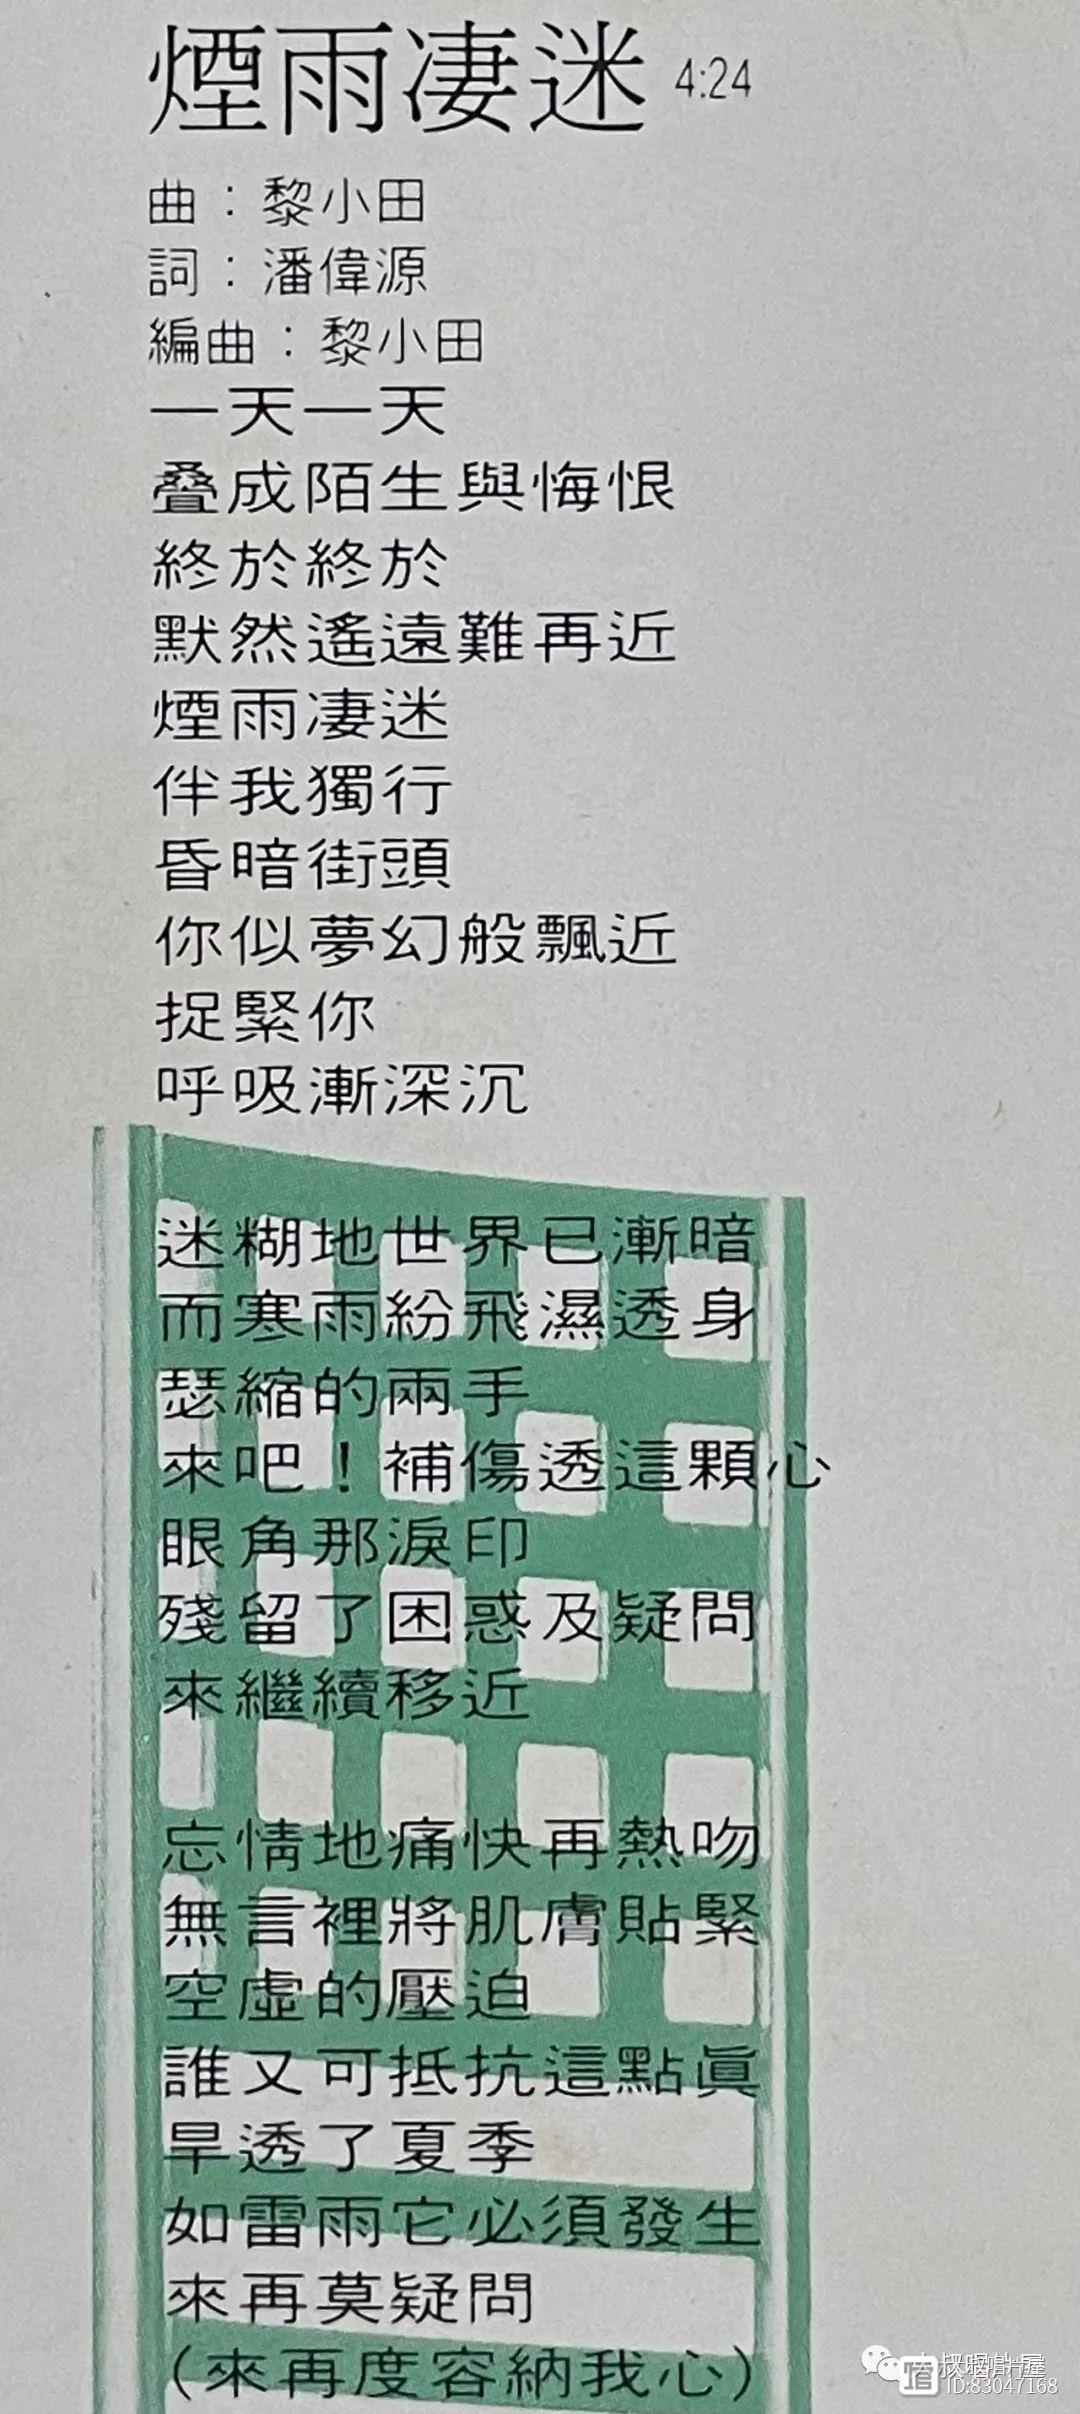 煙雨凄迷 4:24
曲：黎小田
詞：潘偉源
編曲：黎小田
一天一天
叠成陌生與悔恨
終於終於
默然遙遠難再近
煙雨凄迷
伴我獨行
昏暗街頭
你似夢幻般飄近
捉緊你
呼吸漸深沉
迷糊地世界已漸暗
而寒雨紛飛濕透身
瑟縮的兩手
來吧！補傷透這顆心
眼角那淚印
殘留了困惑及疑問
來繼續移近
忘情地痛快再熱吻
無言裡將肌膚貼緊
空虛的壓迫
誰又可抵抗這點眞
旱透了夏季
如雷雨它必須發生
來再莫疑問
（來再度容納我心）
ID:83047168